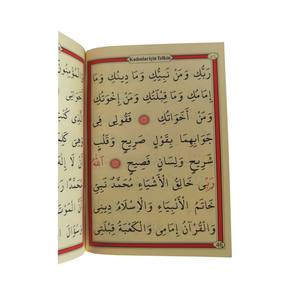 Kadınlar için Telkin
رَبُّكِ وَمَنْ نَبِيُّكِ وَمَا دِينُكِ وَمَا
إِمَامُكِ وَمَا قِبْلَتُكِ وَمَنْ إِخْوَتُكِ
وَمَنْ أَخَوَاتُكِ فَقُولِى فِى
جَوَابِهِمَا بِقَوْلٍ صَرِيحٍ وَقَلْبٍ
شَرِيحٍ وَلِسَانٍ فَصِيحٍ اَللهُ
رَبِّى خَالِقُ الْأَشْيَاءِ مُحَمَّدٌ نَبِيِّى
خَاتَمُ الْأَنْبِيَاءِ وَالْإِسْلَامُ دِينِى
وَالْقُرْآنُ إِمَامِى وَالْكَعْبَةُ قِبْلَتِى